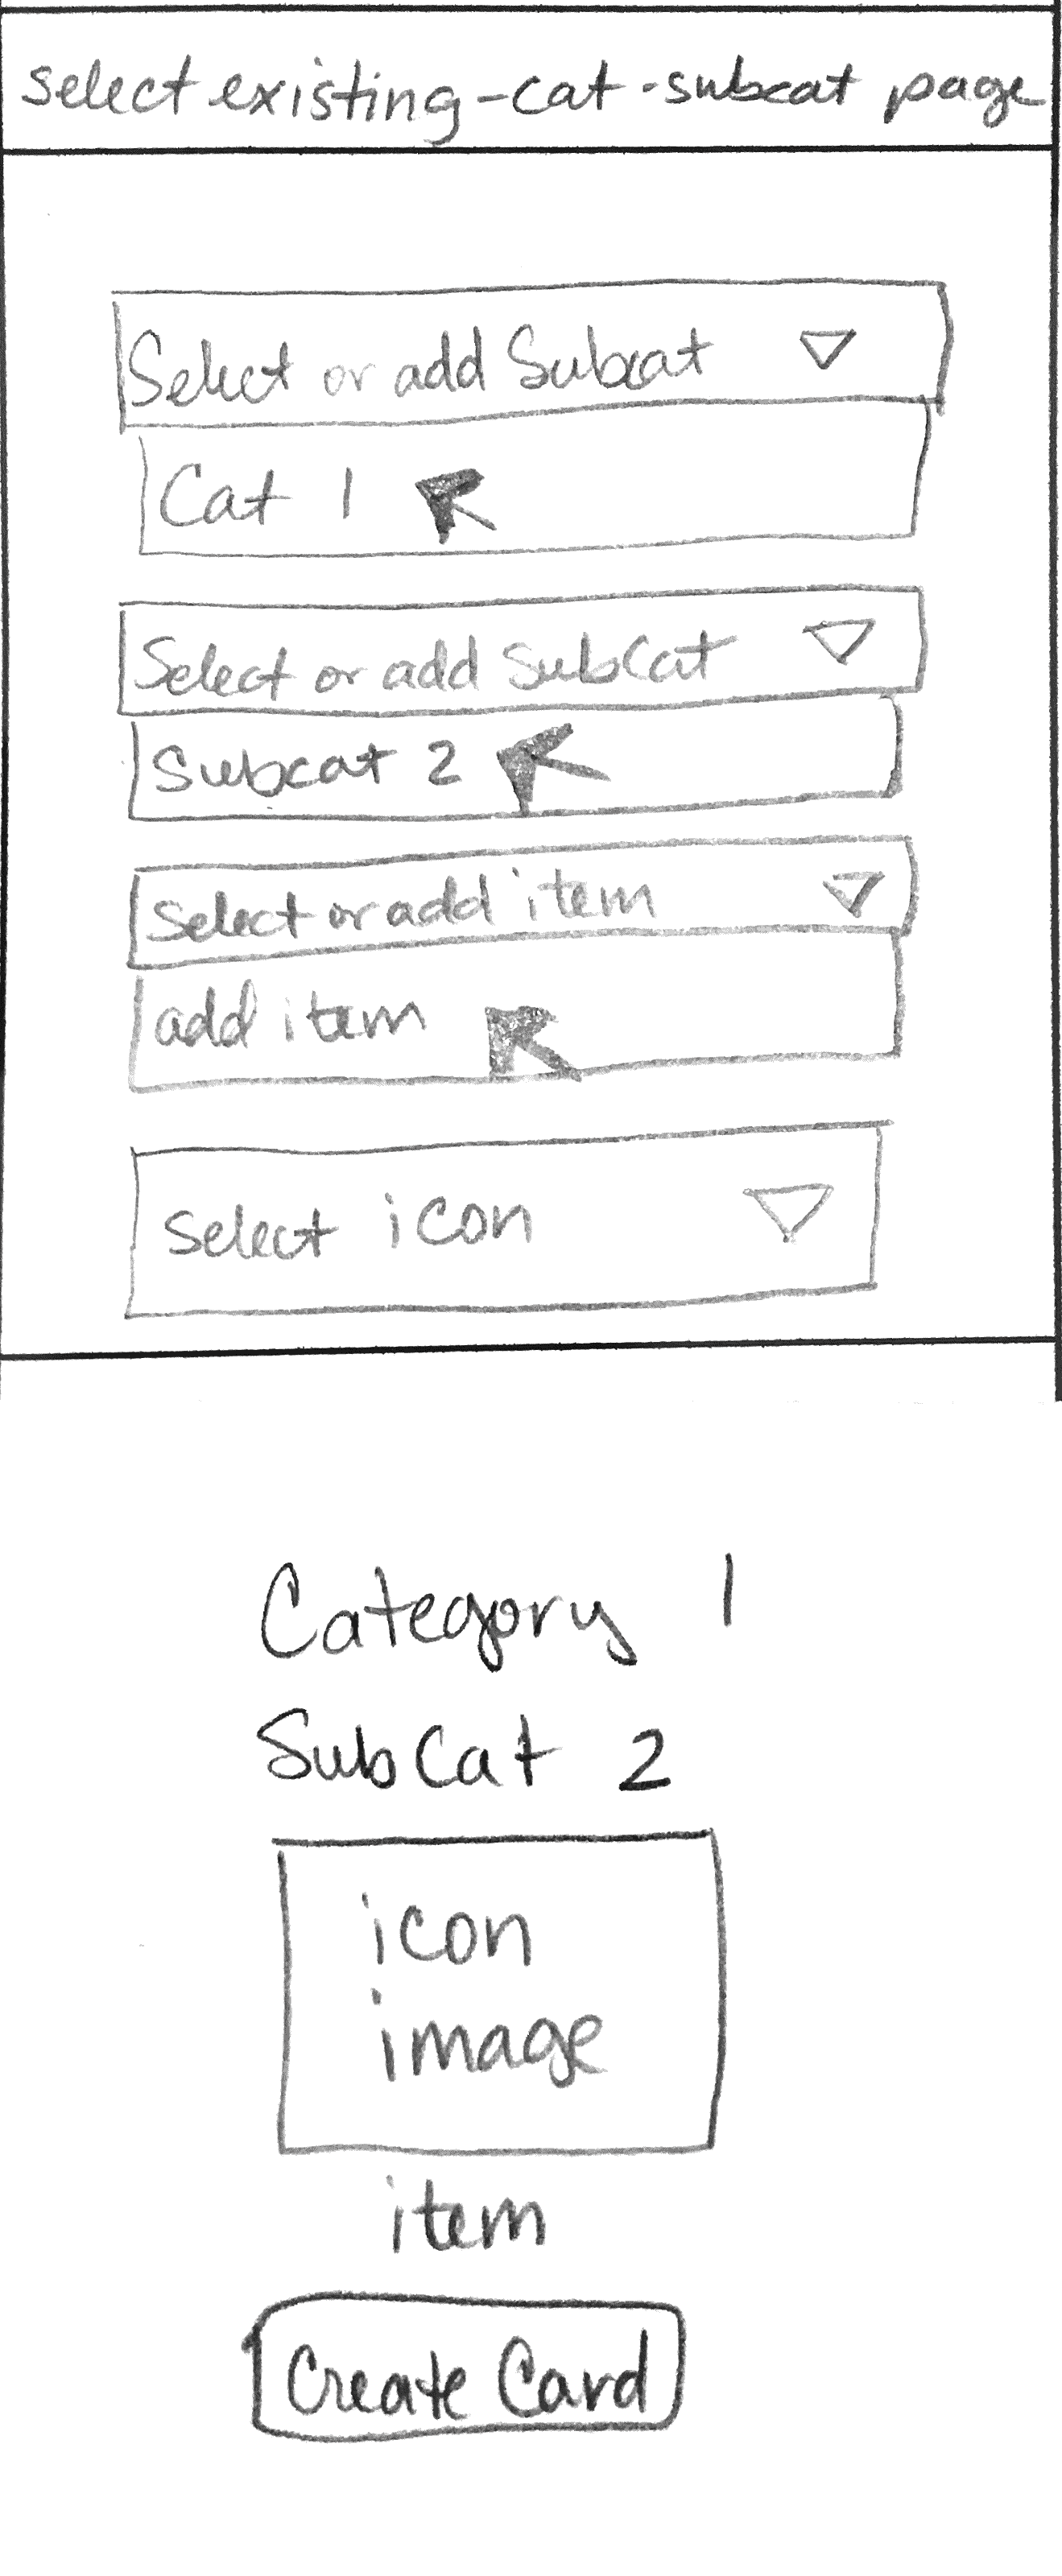 select existing-cat-subcat page
Select or add Subcat
Cat 1
Select or add SubCat
Subcat 2
Select or add item
add item
Select icon
Category 1
SubCat 2
icon
image
item
Create Card